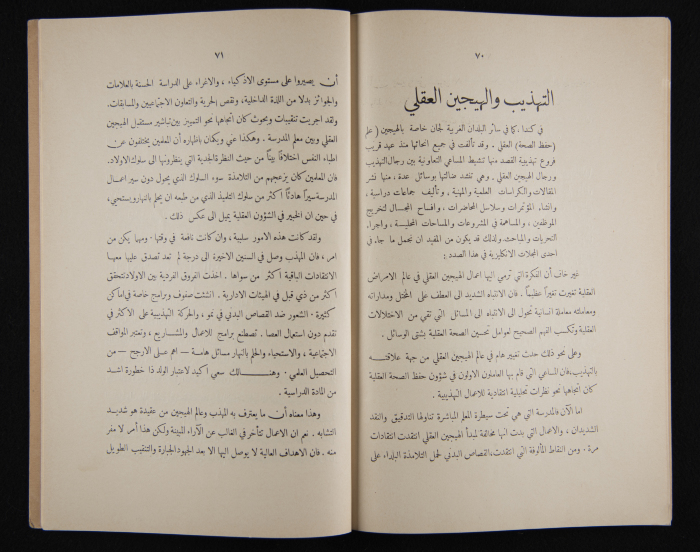 ٧٠
التهذيب والهيجين العقلي
في كندا كما في سائر البلدان الغربية لجان خاصة بالهيجين (علم
حفظ الصحة) العقلي . وقد تألفت في جميع انحائها منذ عهد قريب
فروع تهذيبية القصد منها تنشيط المساعي التعاونية بين رجال التهذيب
ورجال الهيجين العقلي . وهي تنشد ضالتها بوسائل عدة ، منها نشر
المقالات والكراسات العلمية والمهنية . وتأليف جماعات دراسية .
وانشاء المؤتمرات وسلاسل المحاضرات . وافساح المجال لتخريج
الموظفين ، والمساهمة في المشروعات والمساحات المحلية . واجراء
التحريات والمباحث. ولذلك قد يكون من المفيد ان نجمل ما جاء في
احدى المجلات الانكليزية في هذا الصدد :
غير خاف أن الفكرة التي ترمي اليها اعمال الهيجين العقلي في عالم الامراض
العقلية تغيرت تغيراً عظيماً . فان الانتباه الشديد الى العطف على المختل ومداراته
ومعاملته معاملة انسانية تحول الى الانتباه الى المسائل التي تقي من الاختلالات
العقلية وتكسب الفهم الصحيح لعوامل تحسين الصحة العقلية بشتى الوسائل .
وعلى نحو ذلك حدث تغيير هام في عالم الهيجين العقلي من جهة علاقته
بالتهذيب،فان المساعي التي قام بها العاملون الاولون في شؤون حفظ الصحة العقلية
كان أتجاهها نحو نظرات تحليلية انتقادية للاعمال التهذيبية .
اما الآن فالمدرسة التي هي تحت سيطرة المعلم المباشرة تناولها التدقيق والنقد
الشديدان ، والاعمال التي بدت انها مخالفة لمبدأ الهيجين العقلي انتقدت انتقادات
مرة . ومن النقاط المألوفة التي انتقدت،القصاص البدني لحمل التلامذة البلداء على
٧١
أن يصيروا على مستوى الاذكياء ، والاغراء على الدراسة الحسنة بالعلامات
والجوائز بدلا من اللذة الداخلية، ونقص الحرية والتعاون الاجتماعيين والمسابقات.
ولقد اجريت تنقيبات وبحوث كان أتجاهها نحو التمييز بين تباشير مستقبل الهيجين
العقلي وبين معلم المدرسة . وهكذا عني ويكمان باظهاره أن المعلمين يختلفون عن
اطباء النفس اختلافاً بيناً من حيث النظرة الجدية التي ينظرونها الى سلوك الاولاد.
فان المعلمين كان يزعجهم من التلامذة سوء السلوك الذي يحول دون سير اعمال
المدرسة سيراً هادئاً أكثر من سلوك التلميذ الذي من طبعه ان يحلم بالنهار ويستحيي،
في حين ان الخبير في الشؤون العقلية يميل الى عكس ذلك .
ولقد كانت هذه الامور سلبية ، وان كانت نافعة في وقتها . ومهما يكن من
امر، فان المهذب وصل في السنين الاخيرة الى درجة لم تعد تصدق عليها معها
الانتقادات الباقية أكثر من سواها . اخذت الفروق الفردية بين الاولاد تتحقق
أكثر من ذي قبل في الهيئات الادارية . انشئت صفوف وبرامج خاصة في اماكن
كثيرة . الشعور ضد القصاص البدني في نمو ، والحركة التهذيبية على الاكثر في
تقدم دون استعمال العصا . تصطنع برامج للاعمال والمشاريع ، وتعتبر المواقف
الاجتماعية ، والاستحياء والحلم بالنهار مسائل هامة – اهم على الارجح – من
التحصيل العلمي . وهنالك سعي أكيد لاعتبار الولد ذا خطورة اشد
من المادة الدراسية .
وهذا معناه أن ما يعترف به المهذب وعالم الهيجين من عقيدة هو شديد
التشابه . نعم ان الاعمال تتأخر في الغالب عن الآراء المبينة ولكن هذا أمر لا مفر
منه . فان الاهداف العالية لا يوصل اليها الا بعد الجهود الجبارة والتنقيب الطويل